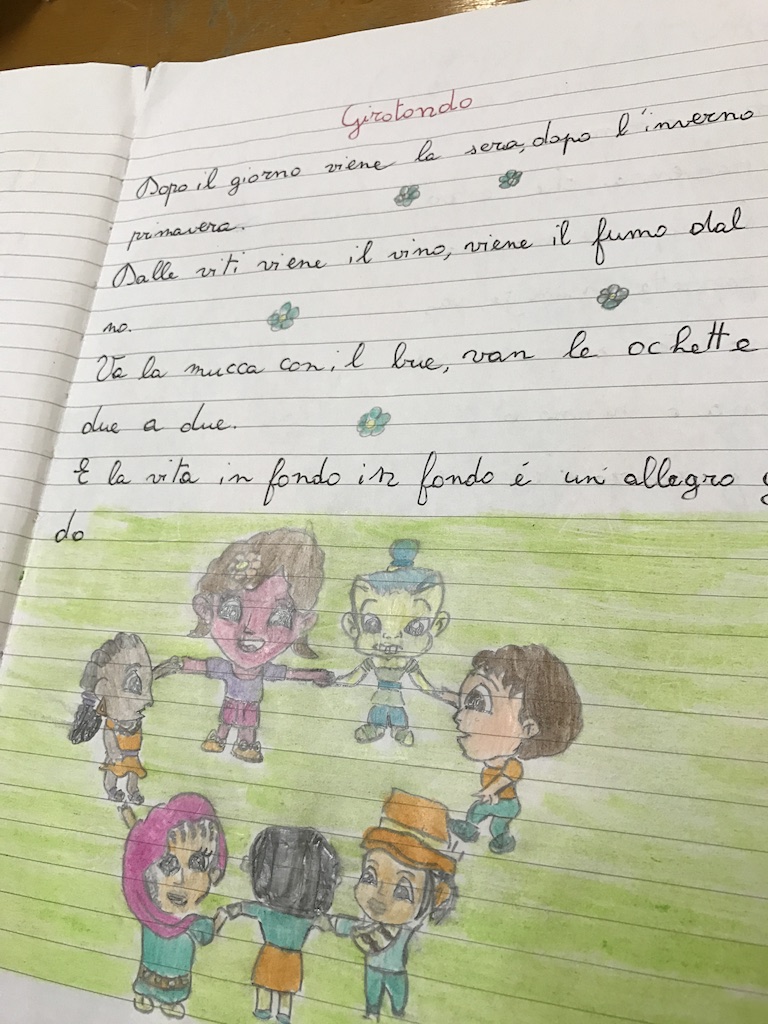 Girotondo
Dopo il giorno viene la sera, dopo l'inverno
primavera.
Dalle viti viene il vino, viene il fumo dal
no.
Va la mucca con il bue, van le ochette
due a due.
E la vita in fondo in fondo é un' allegro
do